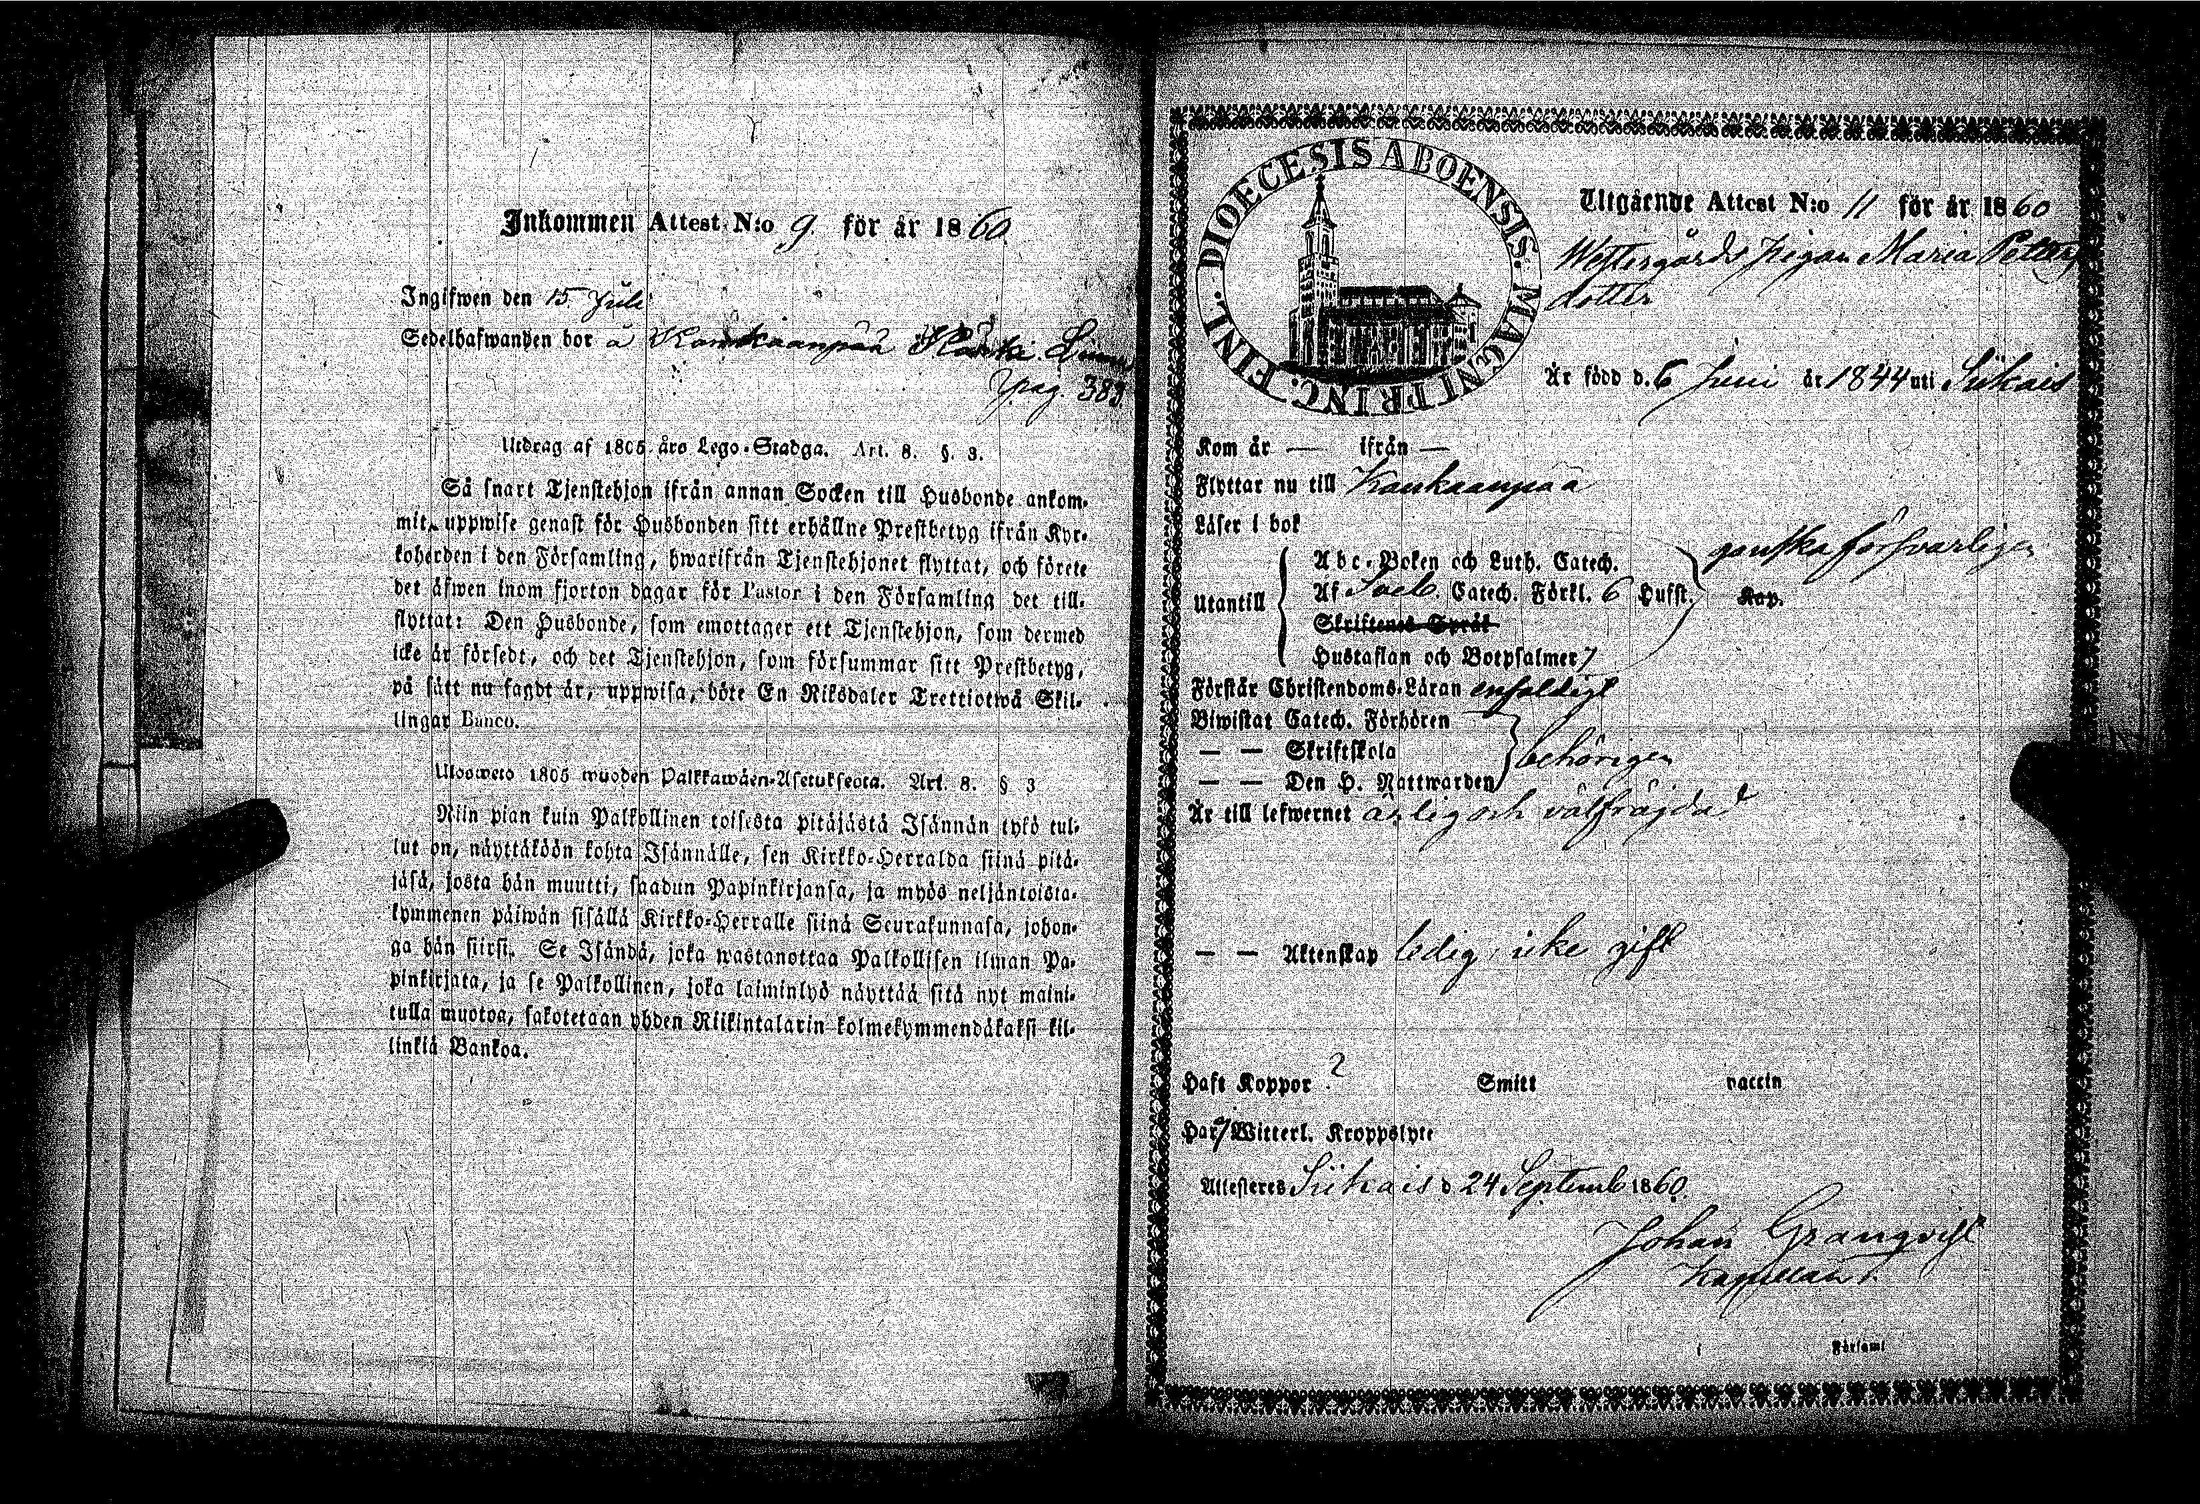 Inkommen Attest N:o 9. för år 1860.
Ingifwen den 15 Juli
Sedelhafwanden bor å Kankaanpää
pag. 383
Utdrag af 1805 åro Lego-Stadga. Art. 8. §. 3.
Så snart Tjenstehjon ifrån annan Socken till Husbonde ankom-
mit, uppwise genast för Husbonden sitt erhållne Prestbetyg ifrån Kyr-
koherden i den Församling, hwarifrån Tjenstehjonet flyttat, och förete
det äfwen inom fjorton dagar för Pastor i den Församling det till-
flyttat: Den Husbonde, som emottager ett Tjenstehjon, som dermed
icke är försedt, och det Tjenstehjon, som försummar sitt Prestbetyg,
på sätt nu sagdt är, uppwisa, böte En Riksdaler Trettiotwå Skil-
lingar Banco.
Ulosweto 1805 wuoden Palkkawäen-Asetuksesta. Art. 8. § 3
Niin pian kuin Palkollinen toisesta pitäjästä Isännän tykö tul-
lut on, näyttäköön kohta Isännälle, sen Kirkko-Herralda siinä pitä-
jäsä, josta hän muutti, saadun Papinkirjansa, ja myös neljäntoista-
kymmenen päiwän sisällä Kirkko-Herralle siinä Seurakunnasa, johon-
ga hän siirsi. Se Isändä, joka wastanottaa Palkollisen ilman Pa-
pinkirjata, ja se Palkollinen, joka laiminlyö näyttää sitä nyt maini-
tulla muotoa, sakotetaan yhden Riikintalarin kolmekymmendäkaksi kil-
linkiä Bankoa.
DIOECESIS ABOENSIS. MAGNI PRINC. FINL.
Utgående Attest N:o 11 för år 1860
Westergårds pigan Maria Petters
dotter
Är född d. 6 Juni år 1844 uti Siikais
Kom år — ifrån —
Flyttar nu till Kankaanpää
Läser i bok
ganska försvarligen
Abc-Boken och Luth. Catech.
Utantill
Af Sveb. Catech. Förkl. 6 Hufst. Kap.
Skriftenes Språk
Hustaflan och Botpsalmer 7
Förstår Christendoms-Läran enfaldigt
Biwistat Catech. Förhören
— — Skriftskola
behörigen
— — Den H. Nattwarden
Är till lefwernet ärlig och välfräjdad
— — Äktenskap ledig, icke gift
Haft Koppor ? Smitt vaccin
Har Witterl. Kroppslyte
Attesteres Siikais d 24 Septemb 1860.
Johan Granqvist
Kapellan
i Församl